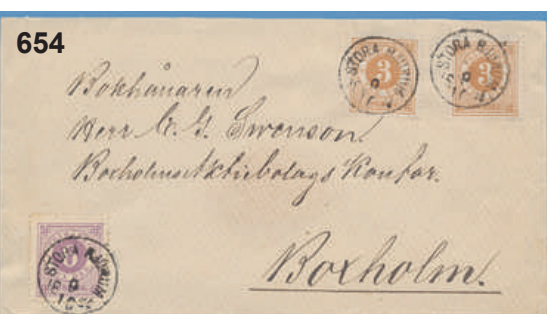 654
STORA BJURUM
3
STORA BJURUM
3
Bokhållaren
Herr C. G. Swenson.
Boxholms Aktiebolags Kontor.
Boxholm.
STORA BJURUM
6